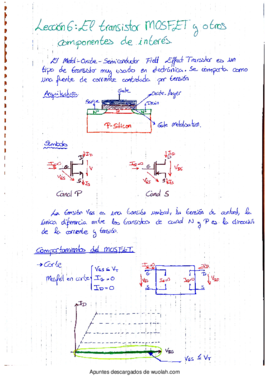 Lección 6: El transistor MOSFET y otros
componentes de interés
El Metal-Oxide-Semiconductor Field Effect Transistor es un
tipo de transistor muy usado en electrónica. Se comporta como
una fuente de corriente controlada por tensión
Arquitectura
Gate
Oxide-Layer
Drain
P-Silicon
Gate Metalization
Símbolos
Canal P
Canal S
La tensión VGS es una tensión umbral, la tensión de control, la
única diferencia entre los transistores de canal N y P es la dirección
de la corriente y tensión.
Comportamientos del MOSFET
→ Corte
Mosfet en corte
VGS ≤ VT
IG = 0
ID = 0
ID
VDS
VGS ≤ VT
Apuntes descargados de wuolah.com